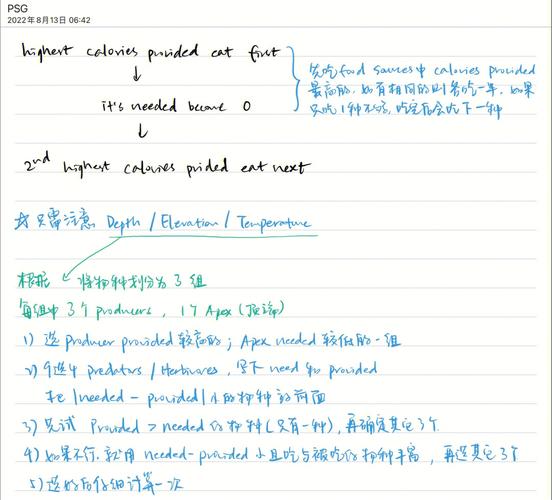 PSG
2022年8月13日 06:42
highest calories provided eat first
↓
it's needed become 0
↓
2nd highest calories prided eat next
先吃food sources中 calories provided
最高的, 如有相同的则各吃一半, 如果
只吃1种不够, 吃完后会吃下一种
☆ 只需注意 Depth / Elevation / Temperature
根据 将物种划分为 3 组
每组中 3个 producers, 1个 Apex (顶端)
1) 选 producer provided 较高的; Apex needed 较低的一组
2) 挑选4 predators / Herbivores, 写下 need 和 provided
把 |needed - provided| 小的物种 前面
3) 先试 Provided > needed 的物种(只有一种), 再确定其它3个
4) 如果不行, 就用 needed-provided 小且吃与被吃的物种丰富, 再选其它3个
5) 选好后仔细计算一次